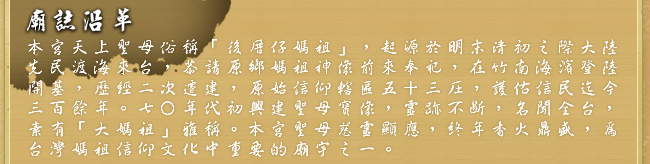 廟誌沿革
本宮天上聖母俗稱「後厝仔媽祖」，起源於明末清初之際大陸
先民渡海來台，恭請原鄉媽祖神像前來奉祀，在竹南海濱登陸
開墾，歷經二次遷建，原始信仰轄區五十三庄，護佑信民迄今
三百餘年。七〇年代初興建聖母寶像，靈跡不斷，名聞全台，
素有「大媽祖」雅稱。本宮聖母慈靈顯應，終年香火鼎盛，為
台灣媽祖信仰文化中重要的廟宇之一。